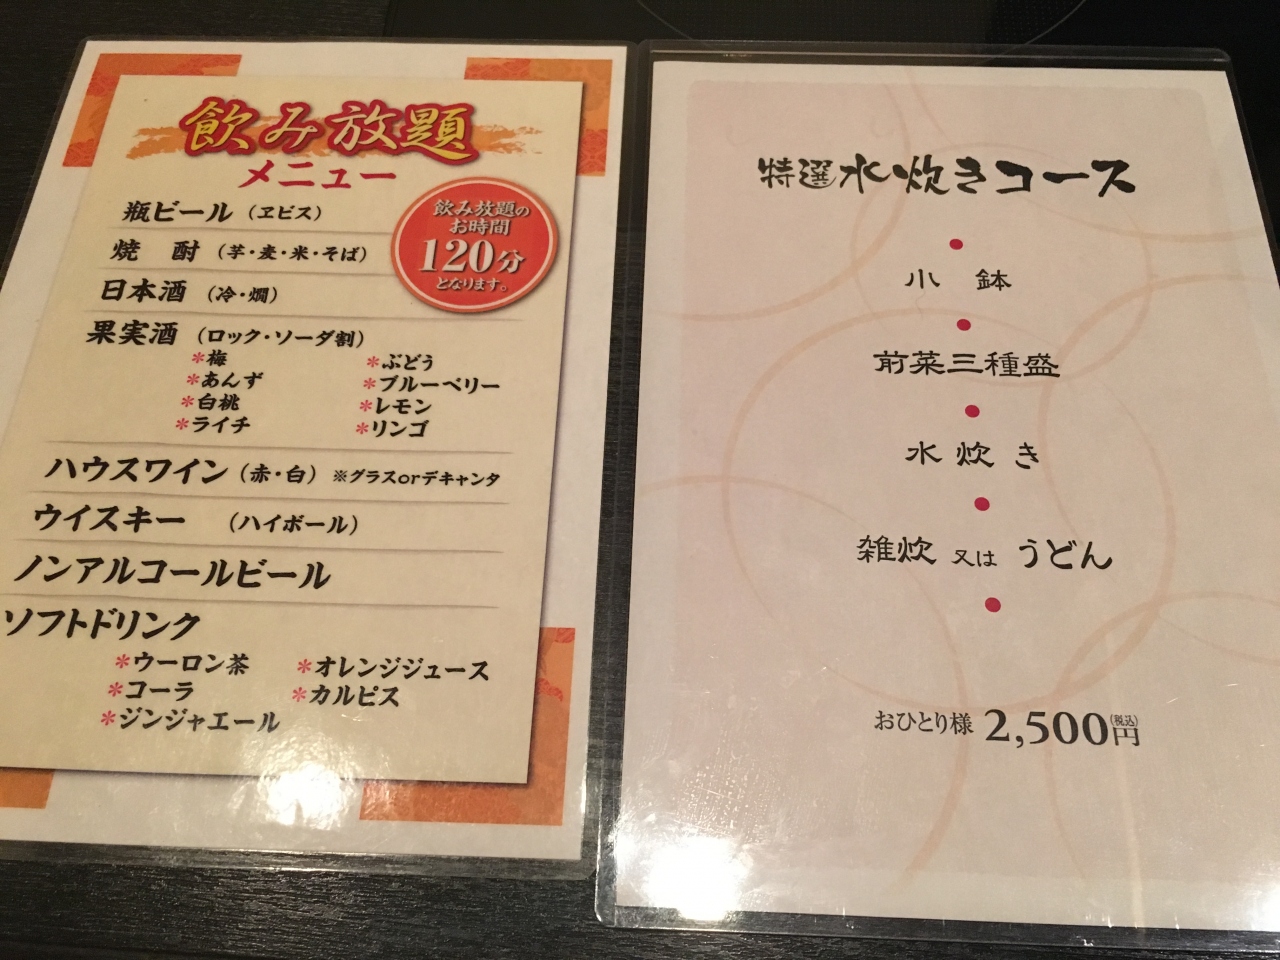 飲み放題
メニュー
飲み放題の
お時間
120分
となります。
瓶ビール（ヱビス）
焼　酎（芋・麦・米・そば）
日本酒（冷・燗）
果実酒（ロック・ソーダ割）
*梅　*ぶどう
*あんず　*ブルーベリー
*白桃　*レモン
*ライチ　*リンゴ
ハウスワイン（赤・白）※グラスorデキャンタ
ウイスキー　（ハイボール）
ノンアルコールビール
ソフトドリンク
*ウーロン茶　*オレンジジュース
*コーラ　*カルピス
*ジンジャエール
特選水炊きコース
小　鉢
前菜三種盛
水炊き
雑炊 又は うどん
おひとり様 2,500円(税込)